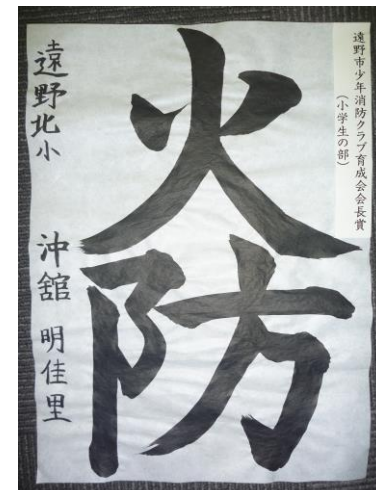 遠野市少年消防クラブ育成会会長賞
（小学生の部）
火防
遠野北小　沖舘　明佳里